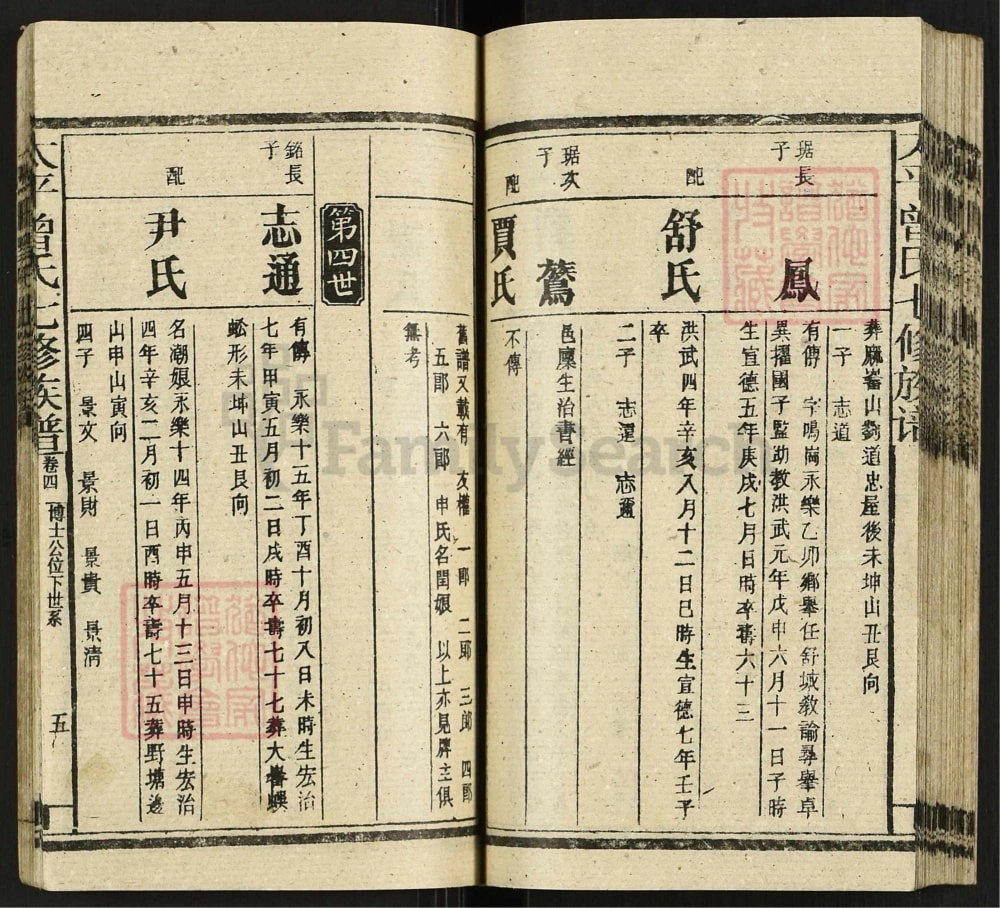 太平曾氏七修族譜
葬麻崙山劉道忠屋後未坤山丑艮向
一子 志道
琚長子
鳳
有傳 字鳴崗永樂乙卯鄉舉任舒城教諭尋舉卓
異擢國子監助教洪武元年戊申六月十一日子時
生宣德五年庚戌七月日時卒壽六十三
配
舒氏
洪武四年辛亥八月十二日巳時生宣德七年壬子
卒
二子 志還 志邇
琚次子
鶱
邑廩生治書經
配
賈氏
不傳
舊譜又載有 友權 一郎 二郎 三郎 四郎
五郎 六郎 申氏名閏娘 以上亦見牌主俱
無考
第四世
銘長子
志通
有傳 永樂十五年丁酉十月初八日未時生宏治
七年甲寅五月初二日戌時卒壽七十七葬大
蚣形未坤山丑艮向
配
尹氏
名潮娘永樂十四年丙申五月十三日申時生宏治
四年辛亥二月初一日酉時卒壽七十五葬野塘邊
山申山寅向
四子 景文 景財 景貴 景清
太平曾氏七修族譜 卷四 博士公位下世系 五
FamilySearch